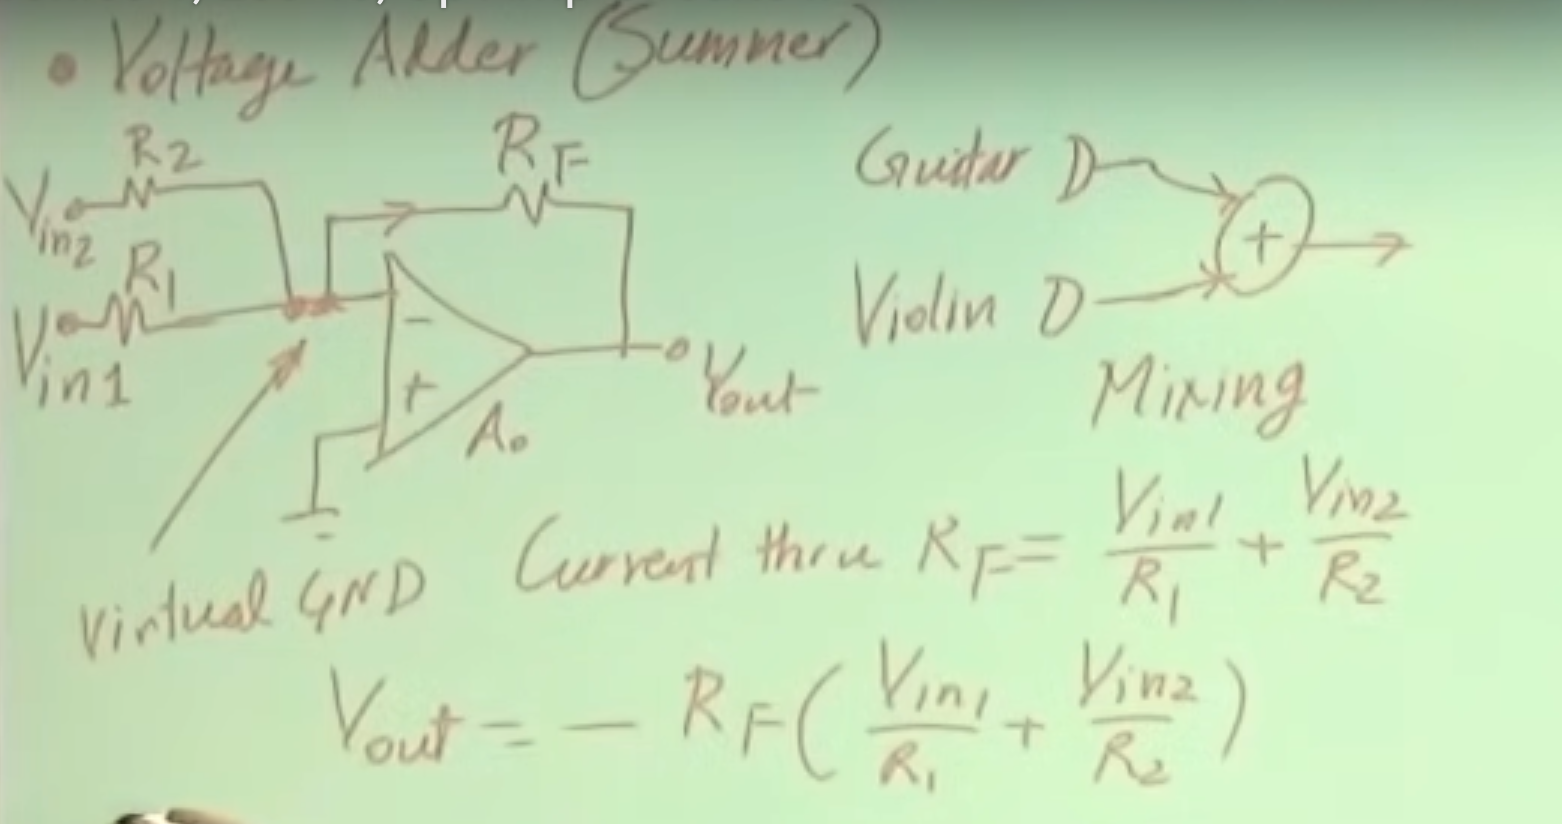 • Voltage Adder (Summer)
R2
RF
Vin2
R1
Vin1
-
+
A0
Vout
Virtual GND
Guitar
Violin
+
Mixing
Current thru RF = Vin1/R1 + Vin2/R2
Vout = - RF ( Vin1/R1 + Vin2/R2 )